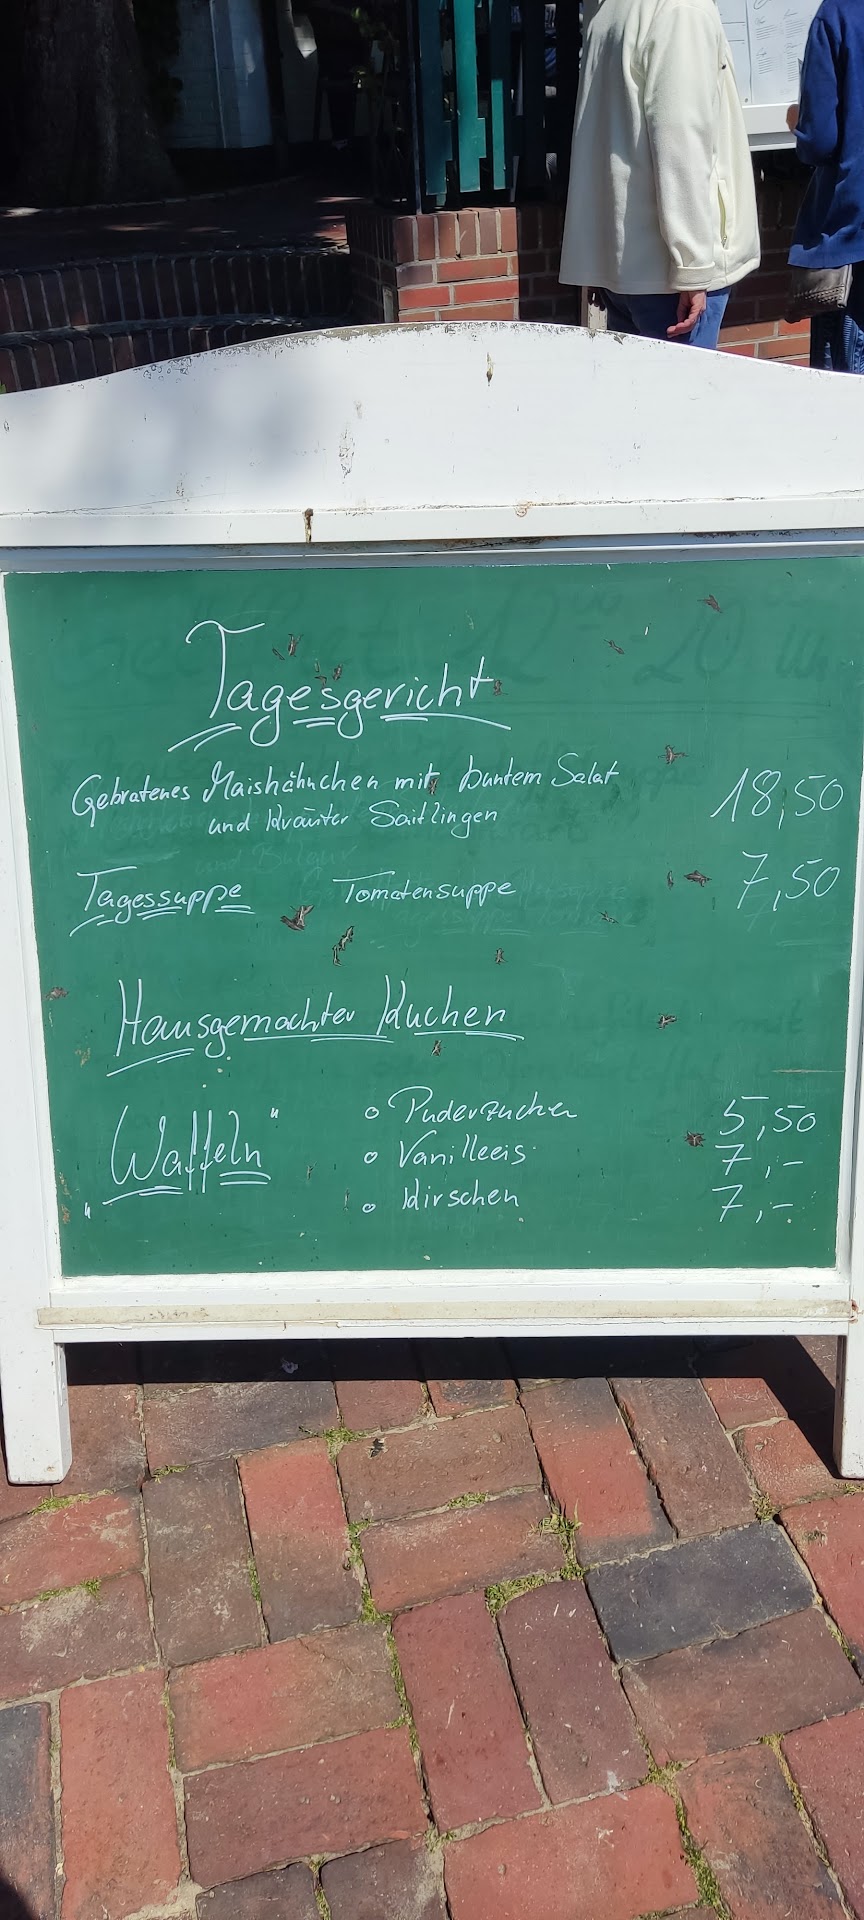 Tagesgericht
Gebratenes Maishähnchen mit buntem Salat 18,50
und Kräuter Saitlingen
Tagessuppe Tomatensuppe 7,50
Hausgemachter Kuchen
"Waffeln" o Puderzucker 5,50
o Vanilleeis 7,-
o Kirschen 7,-